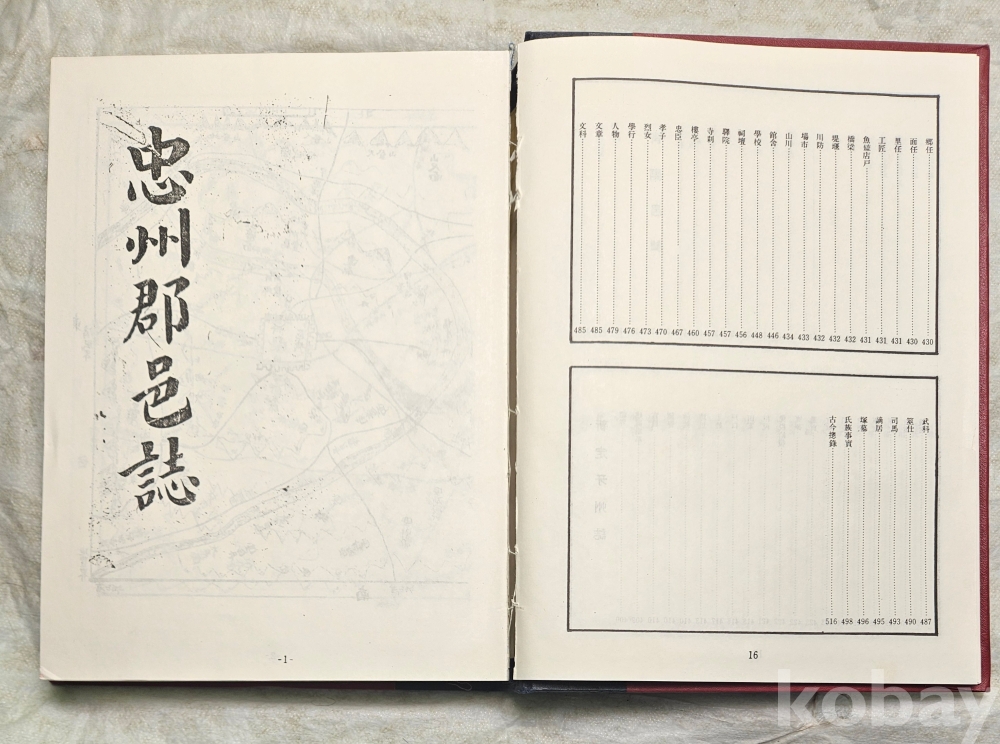 鄕任 430
面任 430
里任 431
工匠 431
魚鹽店戶 431
橋梁 432
堤堰 432
川防 432
場市 433
山川 434
館舍 446
學校 448
祠壇 456
驛院 457
寺刹 457
樓亭 460
忠臣 467
孝子 470
烈女 473
學行 476
人物 479
文章 485
文科 485
武科 487
筮仕 490
司馬 493
謫居 495
塚墓 496
氏族事實 498
古今摠錄 516
16
忠州郡邑誌
-1-
kobay